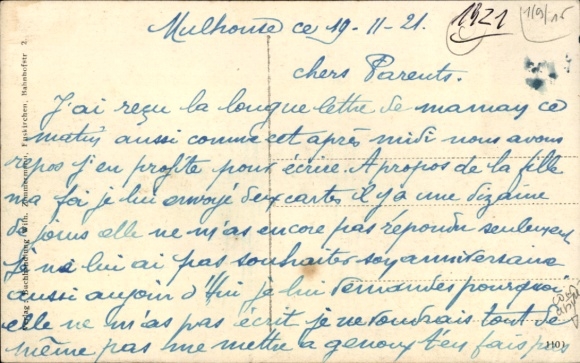 Mulhouse ce 19-11-21.
1921
1/9/15
chers Parents.
J'ai reçu la longue lettre de maman ce
matin aussi comme cet après midi nous avons
repos j'en profite pour écrire. A propos de la fille
ma foi je lui envoyé deux cartes il y a une dizaine
de jours elle ne m'as encore pas répondu seulement
je ne lui ai pas souhaiter son anniversaire
aussi aujoir d'Hui je lui demandes pourquoi
elle ne m'as pas écrit je ne voudrais tout de
même pas me mettre a genoux t'en fais pas
Verlag Buchhandlung Wilh. Zimmermann, Euskirchen, Bahnhofstr. 2.